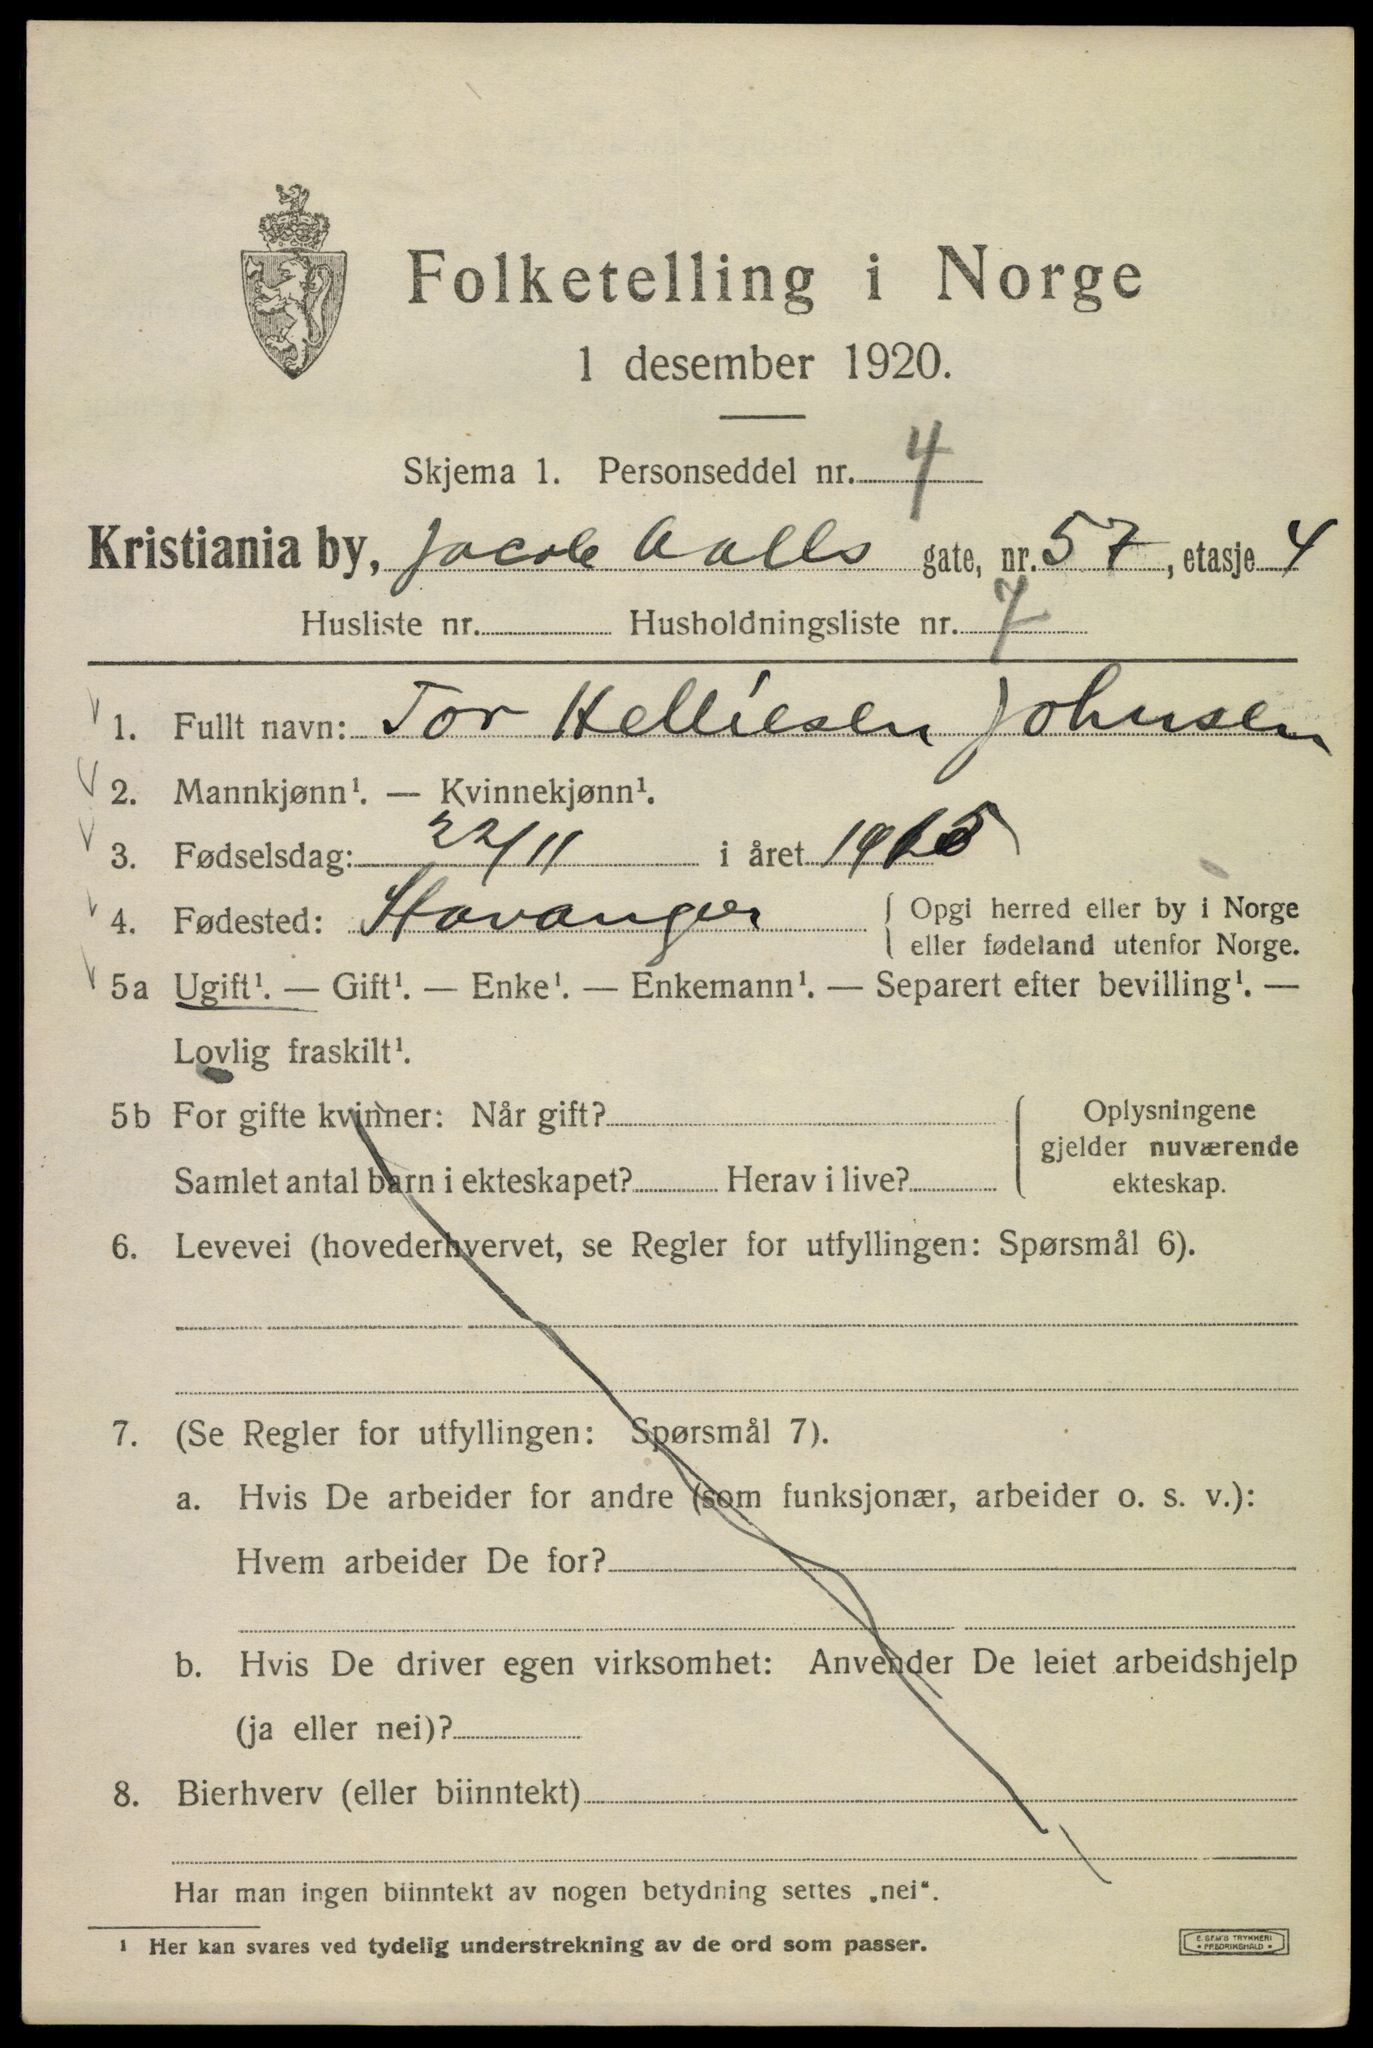 Folketelling i Norge
1 desember 1920.
Skjema 1. Personseddel nr. 4
Kristiania by, Jacob Aalls gate, nr. 57, etasje 4
Husliste nr. Husholdningsliste nr. 7
1. Fullt navn: Tor Helliesen Johnsen
2. Mannkjønn¹. — Kvinnekjønn¹.
3. Fødselsdag: 22/11 i året 1915
4. Fødested: Stavanger { Opgi herred eller by i Norge
eller fødeland utenfor Norge.
5a Ugift¹. — Gift¹. — Enke¹. — Enkemann¹. — Separert efter bevilling¹. —
Lovlig fraskilt¹.
5b For gifte kvinner: Når gift?
Samlet antal barn i ekteskapet? Herav i live?
{ Oplysningene
gjelder nuværende
ekteskap.
6. Levevei (hovederhvervet, se Regler for utfyllingen: Spørsmål 6).
7. (Se Regler for utfyllingen: Spørsmål 7).
a. Hvis De arbeider for andre (som funksjonær, arbeider o. s. v.):
Hvem arbeider De for?
b. Hvis De driver egen virksomhet: Anvender De leiet arbeidshjelp
(ja eller nei)?
8. Bierhverv (eller biinntekt)
Har man ingen biinntekt av nogen betydning settes „nei“.
¹ Her kan svares ved tydelig understrekning av de ord som passer.
E. SEM'S TRYKKERI
FREDRIKSHALD